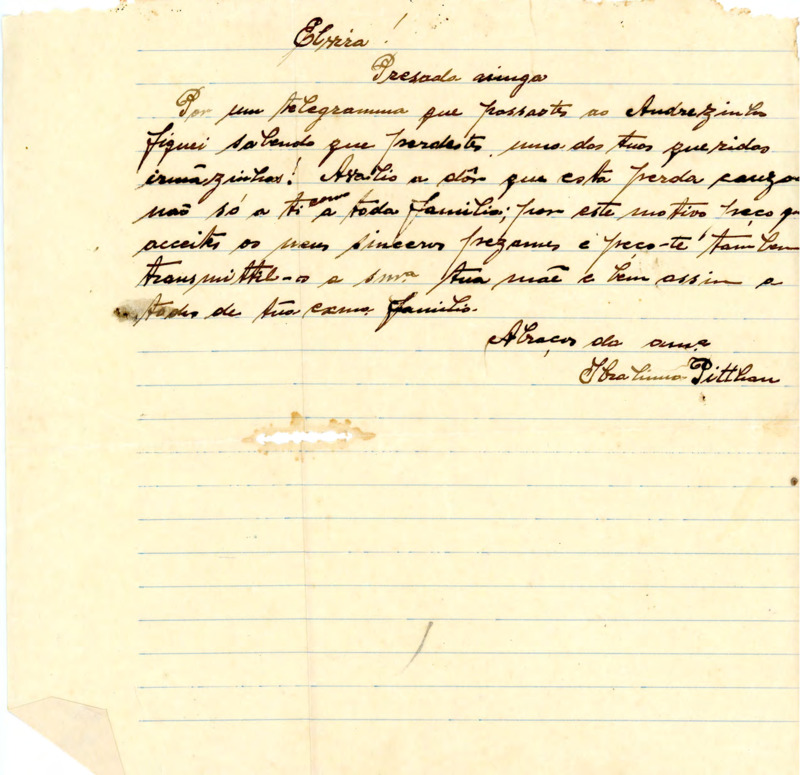 Elvira!
Presada amiga
Por um telegramma que passastes ao Andrezinho
fiquei sabendo que perdestes, uma das tuas queridas
irmãzinhas! Avalio a dôr que esta perda cauza
não só a ti como a toda familia; por este motivo peço q
acceites os meus sinceros pezames e peço-te tambem
transmittil-os a snra tua mãe e bem assim a
todos de tua exma familia.
Abraços da ama
Pitthan